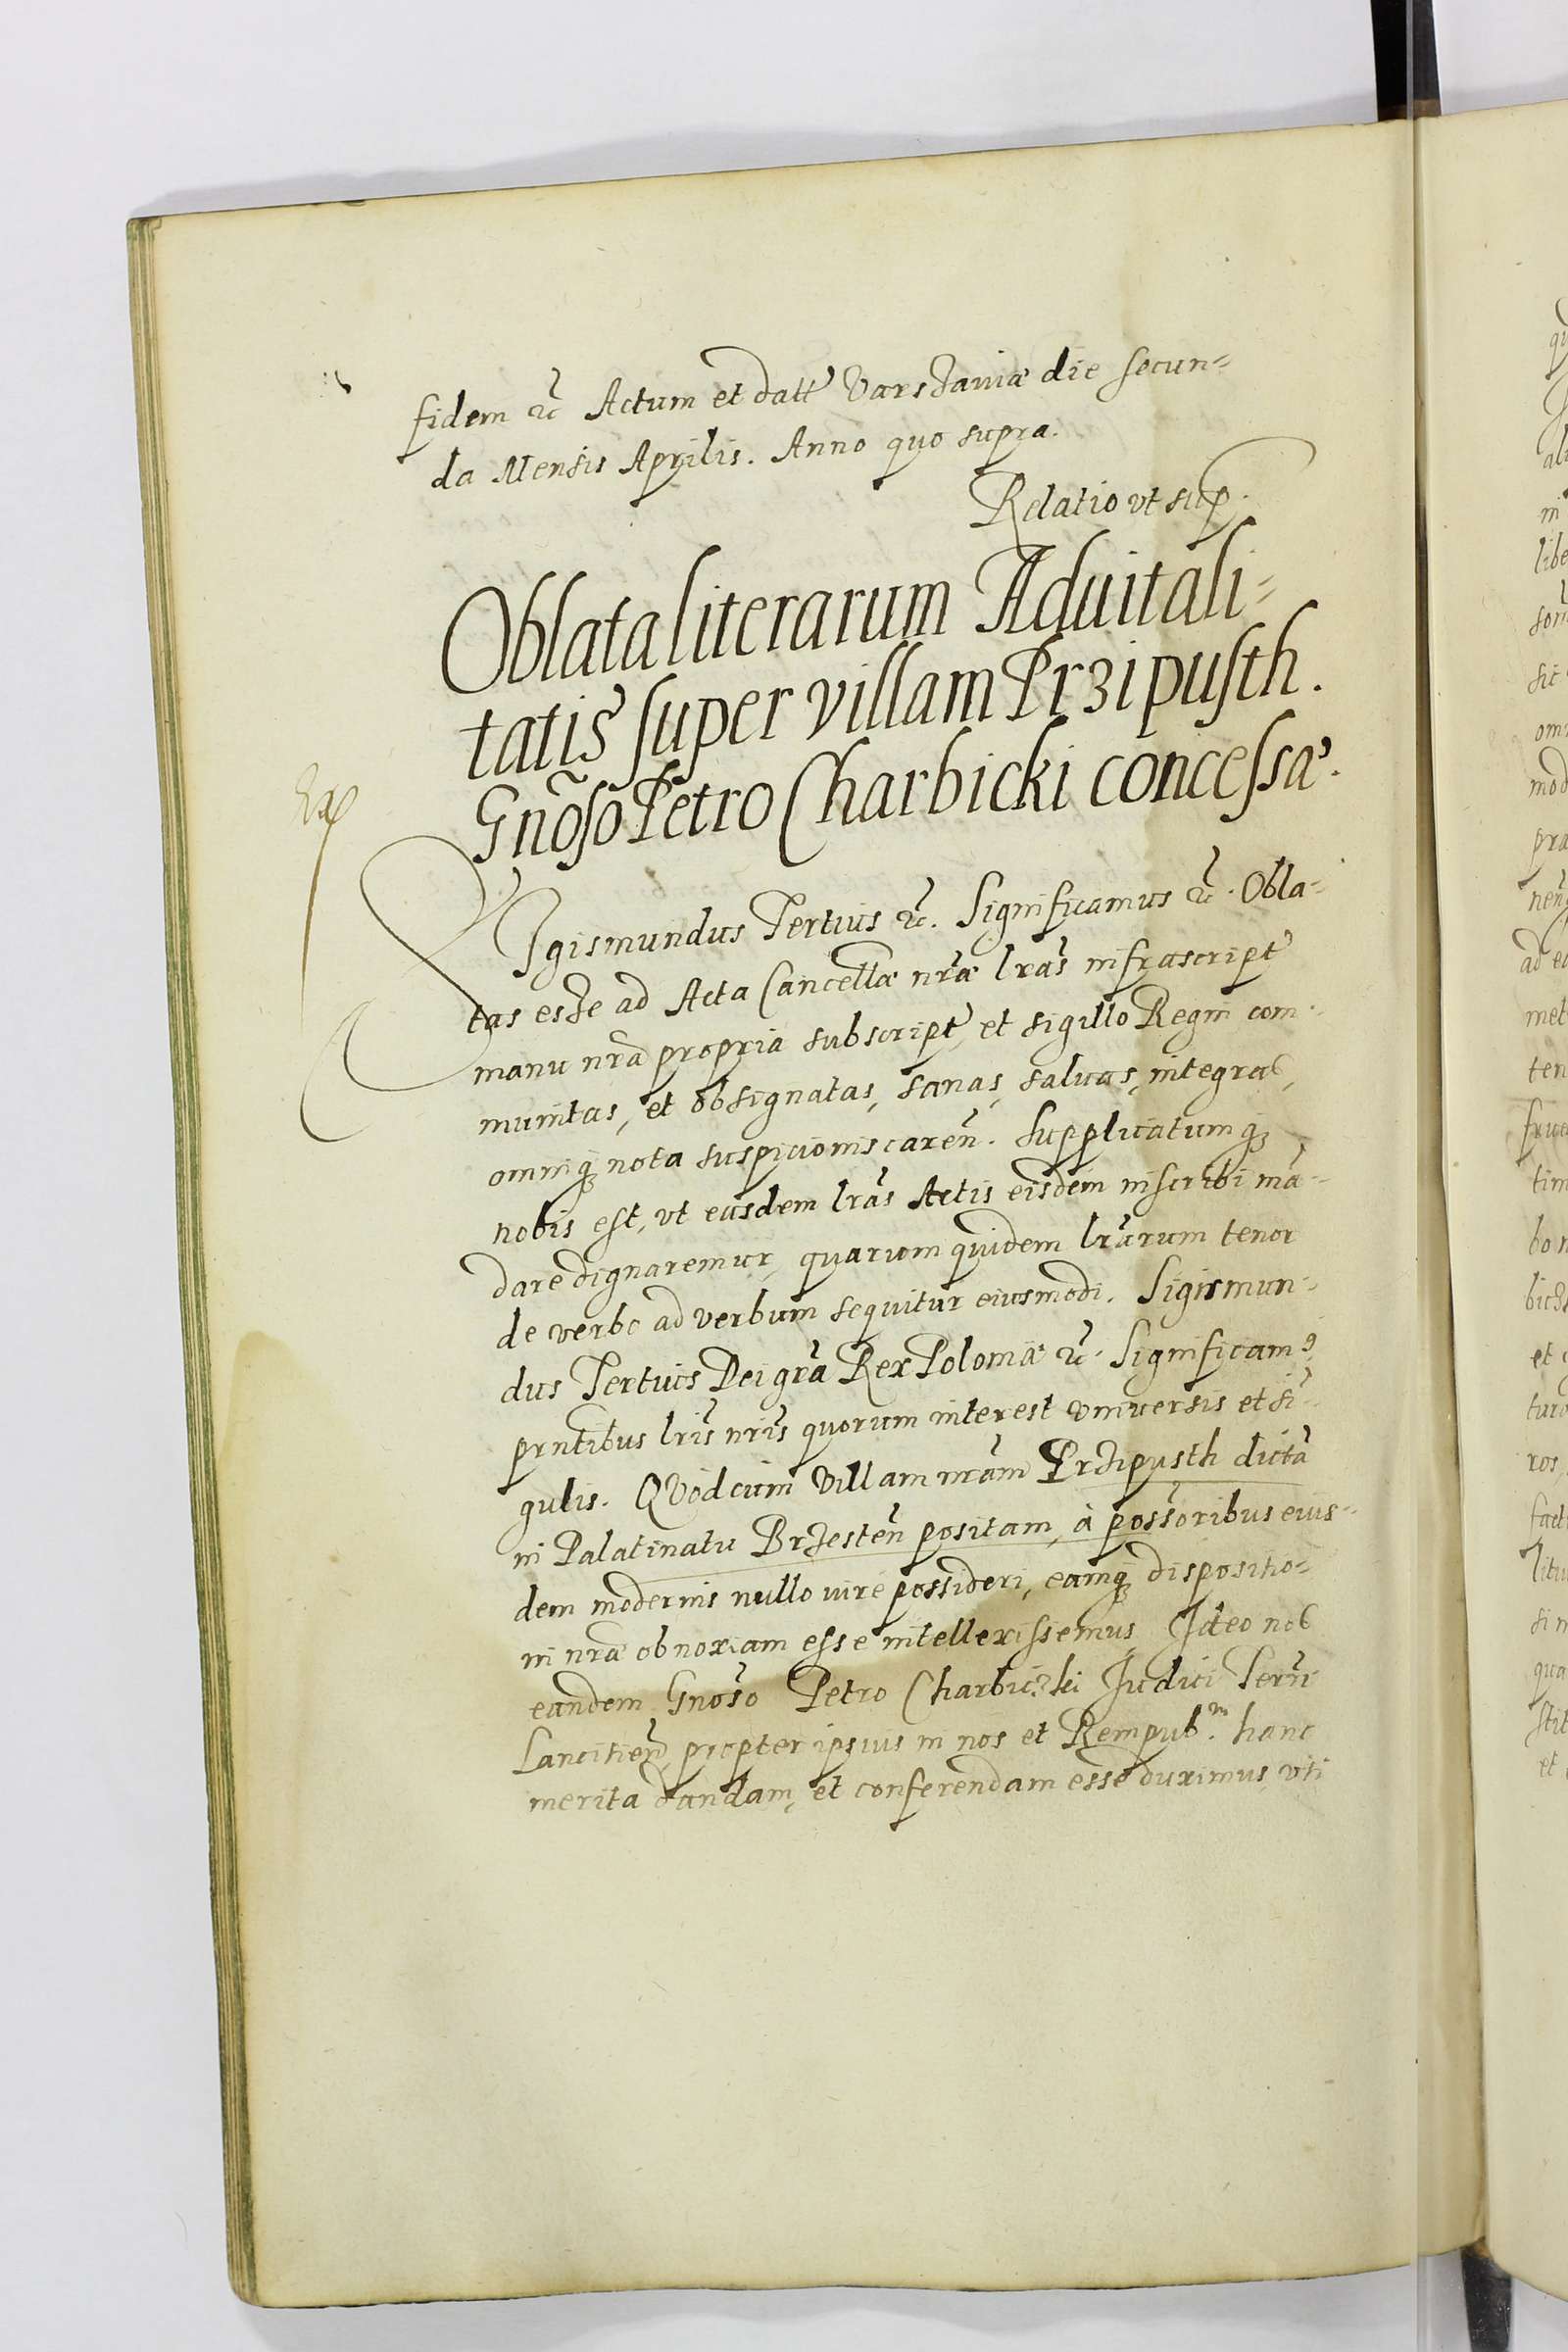 fidem etc Actum et datt Varszaviæ die secun-
da Mensis Aprilis. Anno quo supra.
Relatio vt sup.
Oblata literarum Aduitali-
tatis super villam Przipusth.
Gnoso Petro Charbicki concessa.
SIgismundus Tertius etc. Significamus etc. Obla-
tas esse ad Acta Cancellæ nræ lras infrascript
manu nra propria subscript, et sigillo Regni com-
munitas, et obsignatas, sanas, saluas, integras,
omniq nota suspicionis caren. Supplicatumq
nobis est, vt easdem lras Actis eisdem inscribi mã-
dare dignaremur, quarum quidem lrarum tenor
de verbo ad verbum sequitur eiusmodi. Sigismun-
dus Tertius Dei gra Rex Poloniæ etc. Significam9
prntibus lris nris quorum interest vniuersis et si-
gulis. QVod cum Villam nram Przipusth dictã
in Palatinatu Brzesten positam, à possoribus eius-
dem modernis nullo iure possideri, eamq dispositio-
ni nræ obnoxiam esse intellexissemus, Ideo nos
eandem Gnoso Petro Charbiczki Iudici Terri
Lancitien, propter ipsius in nos et Rempub.m hanc
merita dandam, et conferendam esse duximus, vti